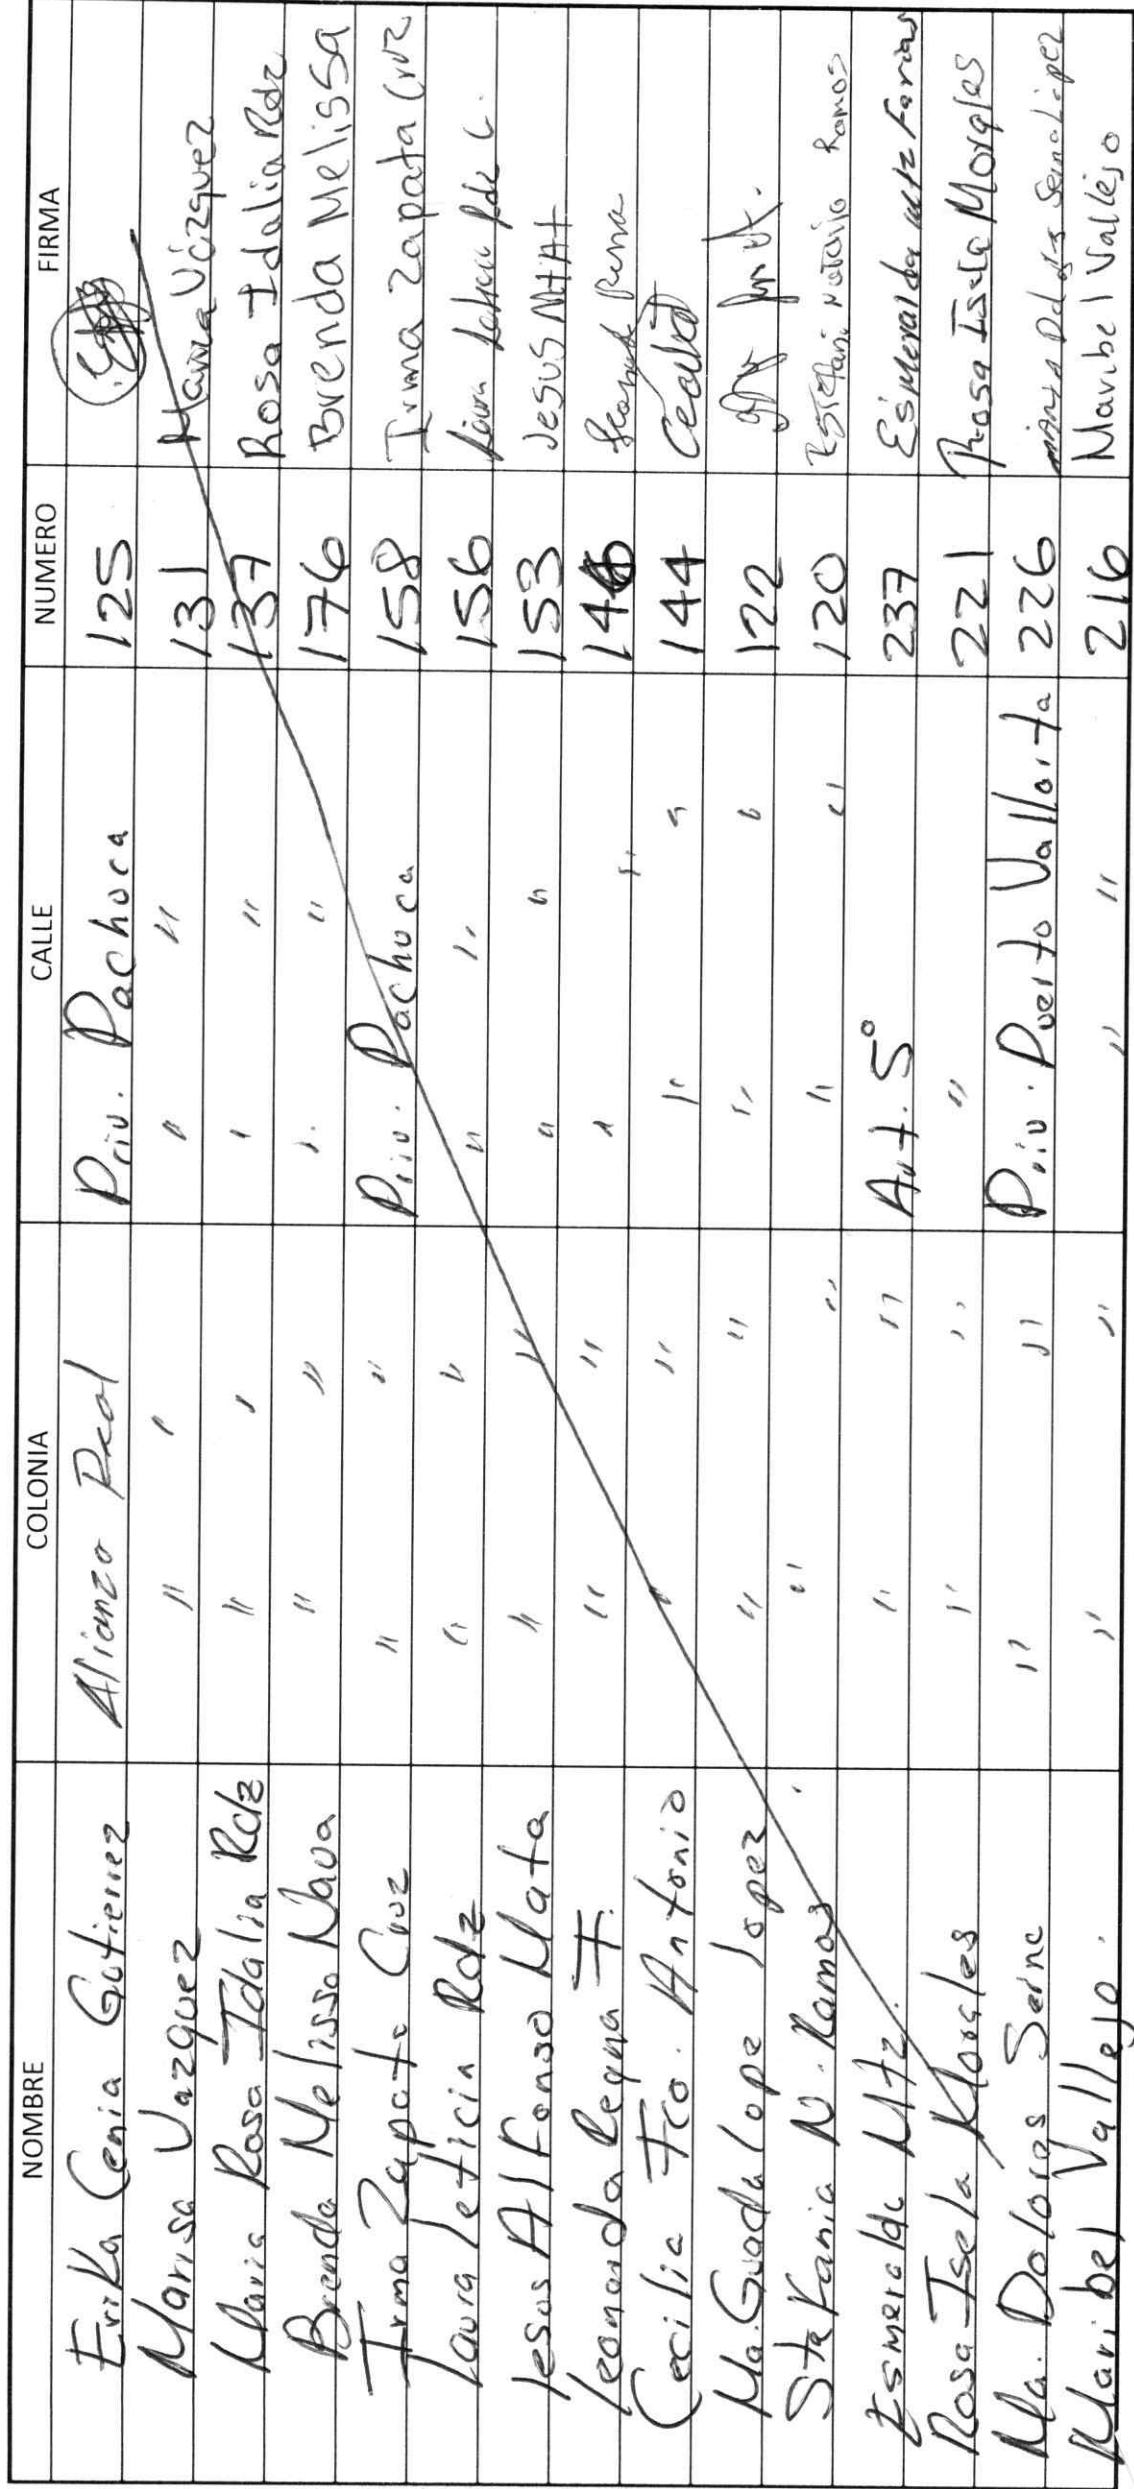 NOMBRE COLONIA CALLE NUMERO FIRMA
Erika Cenia Gutierrez Alianza Real Priv. Pachuca 125
Marisa Vazquez " " " " 131 Marisa Vázquez
Maria Rosa Idalia Rdz " " " " 137 Rosa Idalia Rdz
Brenda Melissa Nava " " " " 176 Brenda Melissa
Irma Zapata Cruz " " Priv. Pachuca 158 Irma Zapata Cruz
Laura Leticia Rdz " " " " 156 Laura Leticia Rdz C.
Jesus Alfonso Mata " " " " 153 Jesus MAtA
Leonarda Regna F. " " " " 146
Cecilia Fco. Antonio " " " " 144
Ma. Guadalope Lopez " " " " 122
Stefania N. Ramos " " " " 120 Ramos
Esmeralda Mtz. " " Art. 5° 237 Esmeralda Mtz Farias
Rosa Isela Morales " " " 221 Rosa Isela Morales
Ma. Dolores Serna " " Priv. Puerto Vallarta 226 Maria Dolores Serna López
Maribel Vallejo. " " " " 216 Maribel Vallejo